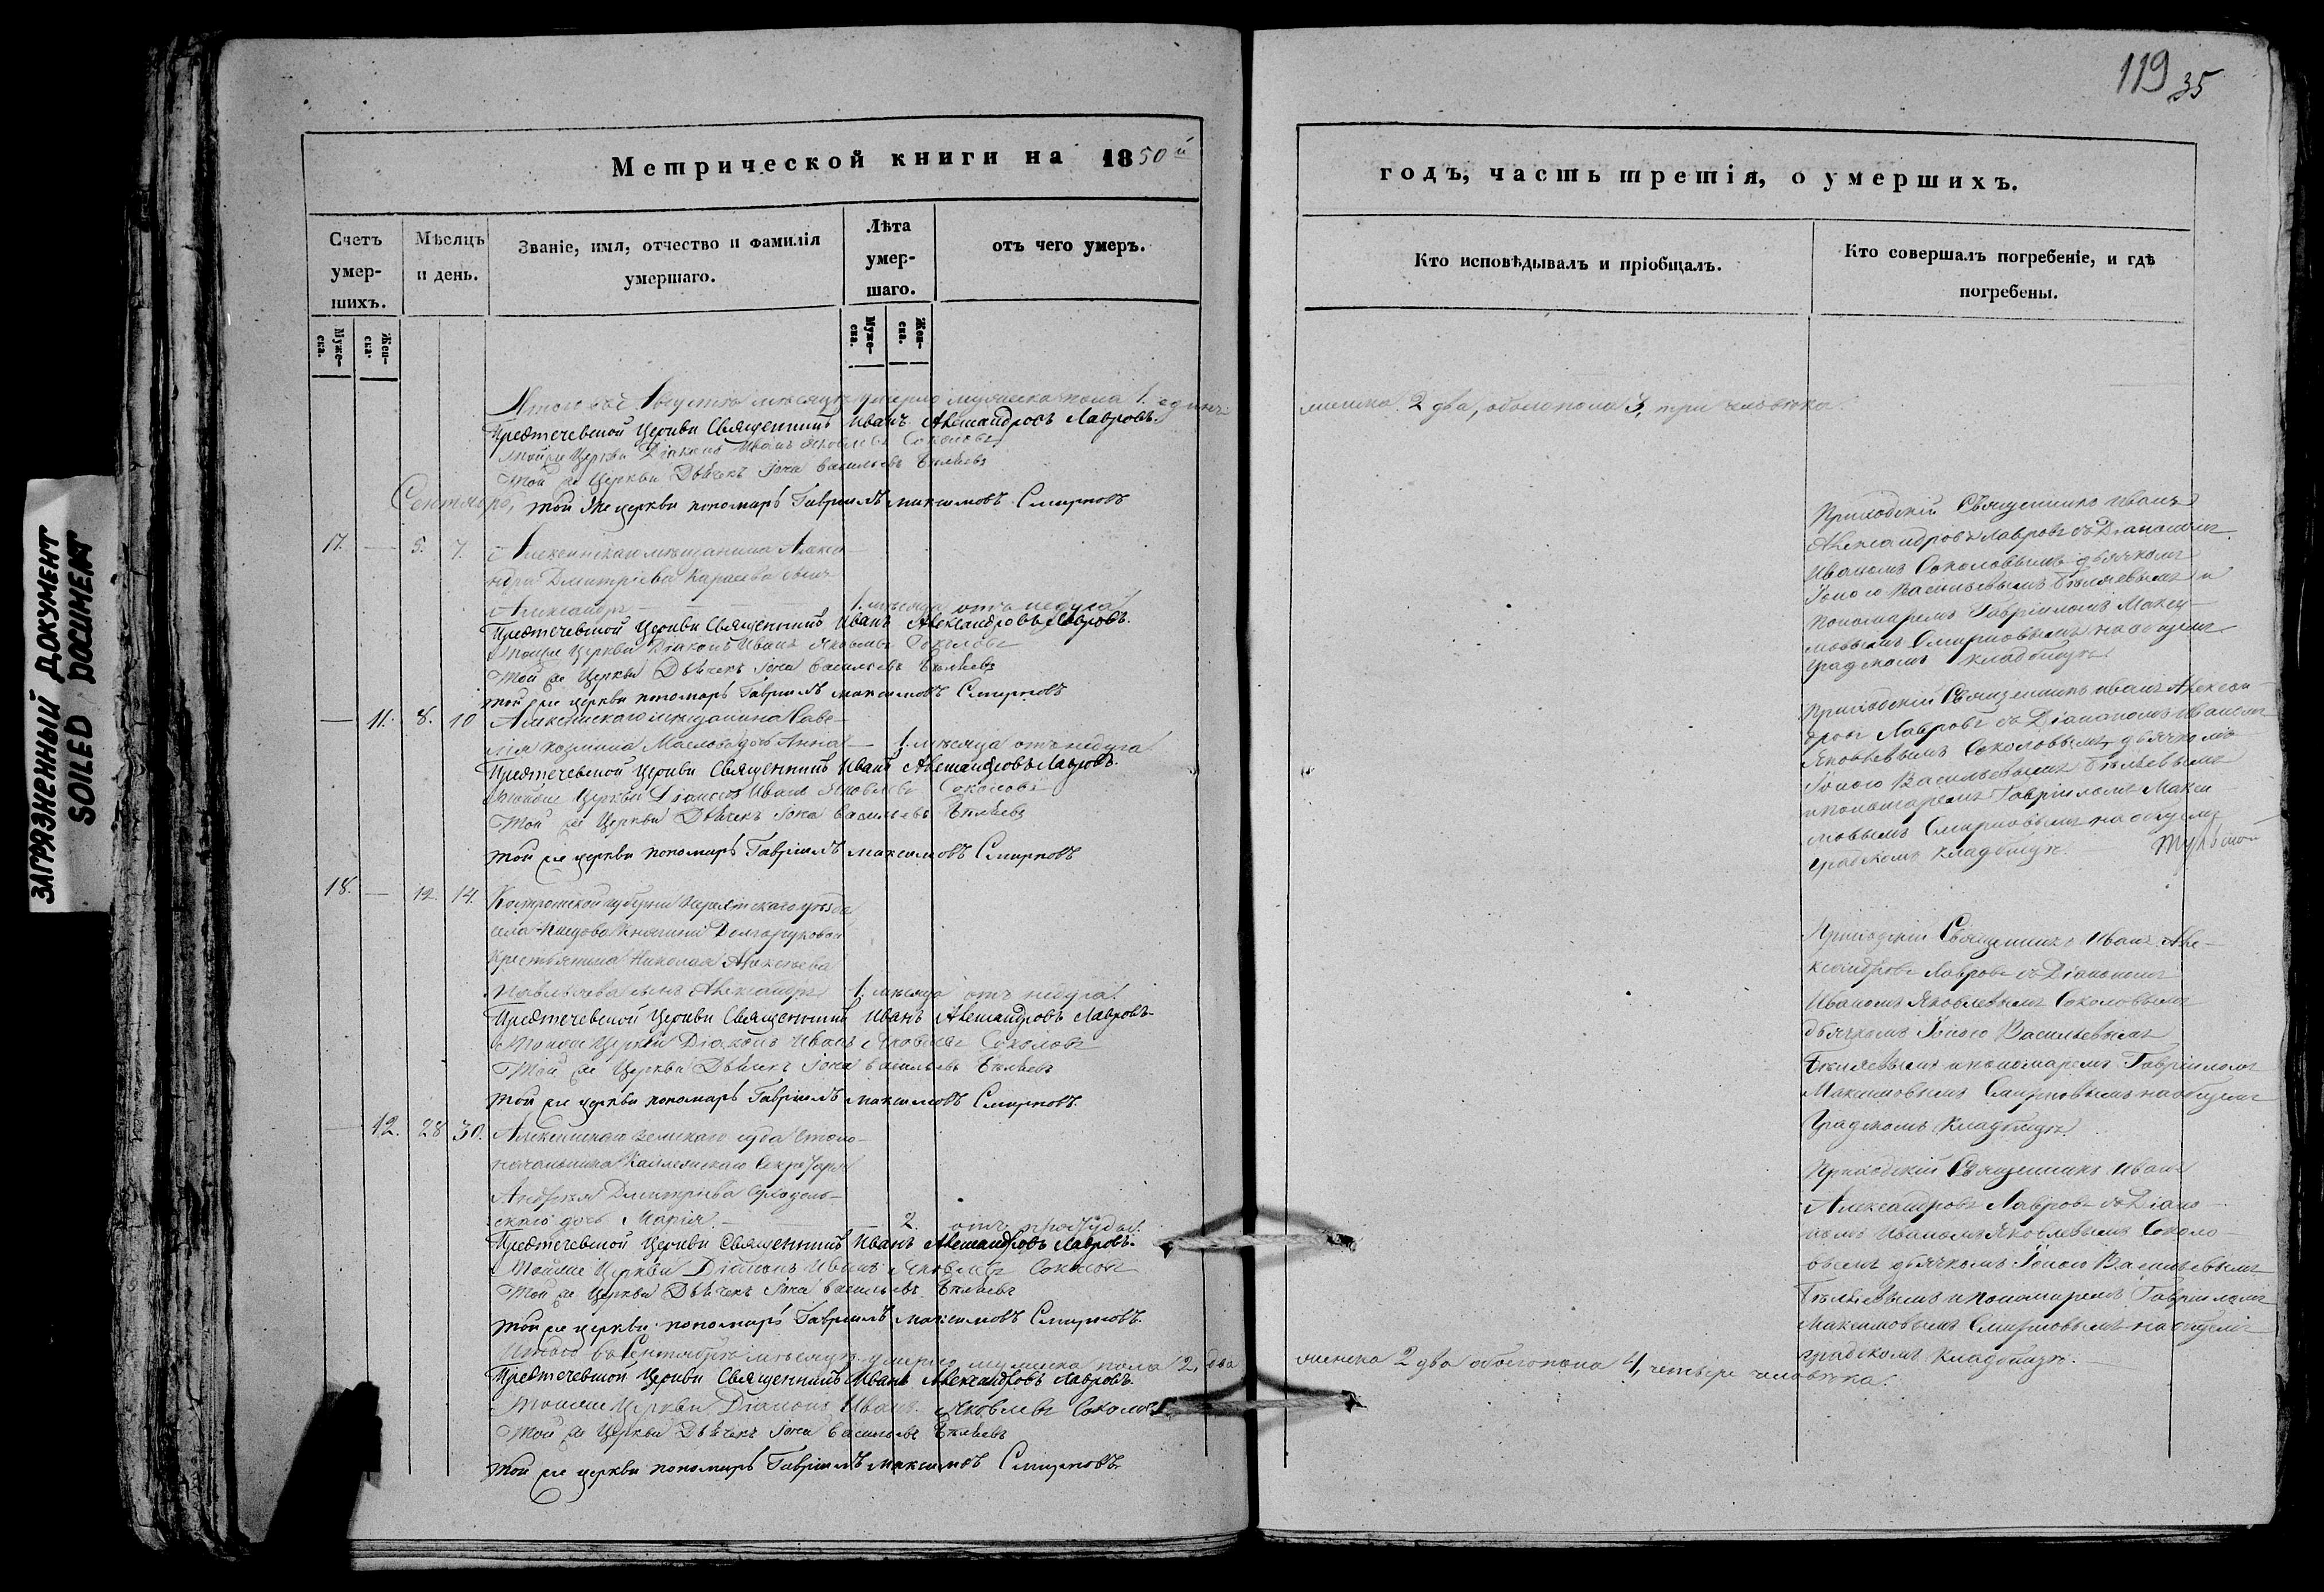 ЗАГРЯЗНЕННЫЙ ДОКУМЕНТ
SOILED DOCUMENT
119 35
Метрической книги на 1850й
годъ, часть третія, о умершихъ.
Счетъ умер-
шихъ.
Муже-
ска.
Жен-
ска.
Мѣсяцъ
и день.
Званіе, имя, отчество и фамилія
умершаго.
Лѣта
умер-
шаго.
Муже-
ска.
Жен-
ска.
отъ чего умеръ.
Кто исповѣдывалъ и пріобщалъ.
Кто совершалъ погребеніе, и гдѣ
погребены.
Августѣ мѣсяцѣ умерло мужеска пола 1. единъ
женска 2 два, обоего пола 3, три человѣка
Предтечевской Церкви Священникъ Иванъ Александровъ Лавровъ.
Тойже Церкви Діаконъ Иванъ Яковлевъ Соколовъ
Той же Церкви Дьячекъ Іона Васильевъ Бѣляевъ
Сентябрь, той же церкви пономарь Гавріилъ Максимовъ Смирновъ
17. — 5. 7. Алексинскаго мѣщанина Алекса-
ндра Дмитріева Карасева сынъ
Александръ — 1. мѣсяца отъ недуга.
Предтечевской Церкви Священникъ Иванъ Александровъ Лавровъ.
Тойже Церкви Діаконъ Иванъ Яковлевъ Соколовъ
Той же Церкви Дьячекъ Іона Васильевъ Бѣляевъ
той же церкви пономарь Гавріилъ Максимовъ Смирновъ
Приходскій Священникъ Иванъ
Александровъ Лавровъ съ Діакономъ
Иваномъ Соколовымъ дьячкомъ
Іоною Васильевымъ Бѣляевымъ и
пономаремъ Гавріиломъ Макси-
мовымъ Смирновымъ на общемъ
градскомъ кладбищѣ.
— 11. 8. 10 Алексинскаго мѣщанина Саве-
лія Козмина Маслова дочь Анна — 1. мѣсяца отъ недуга.
Предтечевской Церкви Священникъ Иванъ Александровъ Лавровъ.
Тойже Церкви Діаконъ Иванъ Яковлевъ Соколовъ
Той же Церкви Дьячекъ Іона Васильевъ Бѣляевъ
той же церкви пономарь Гавріилъ Максимовъ Смирновъ
Приходскій Священникъ Иванъ Алексан-
дровъ Лавровъ съ Діакономъ Иваномъ
Яковлевымъ Соколовымъ, дьячкомъ
Іоною Васильевымъ Бѣляевымъ
и пономаремъ Гавріиломъ Макси-
мовымъ Смирновымъ на общемъ
градскомъ кладбищѣ.
18. — 12 14. Костромской губерніи Нерехтскаго уѣзда
села Княгини Долгоруковой
крестьянина Николая Алексѣева
сынъ Александръ 1. мѣсяца отъ недуга.
Предтечевской Церкви Священникъ Иванъ Александровъ Лавровъ.
Тойже Церкви Діаконъ Иванъ Яковлевъ Соколовъ
Той же Церкви Дьячекъ Іона Васильевъ Бѣляевъ
той же церкви пономарь Гавріилъ Максимовъ Смирновъ.
Приходскій Священникъ Иванъ Але-
ксандровъ Лавровъ съ Діакономъ
Иваномъ Яковлевымъ Соколовымъ
дьячкомъ Іоною Васильевымъ
Бѣляевымъ и пономаремъ Гавріиломъ
Максимовымъ Смирновымъ на общемъ
градскомъ кладбищѣ.
— 12. 28 30. Алексинскаго земскаго суда столо-
начальника Коллежскаго Секретаря
Андрея Дмитріева
скаго дочь Марія. — 2. отъ простуды.
Предтечевской Церкви Священникъ Иванъ Александровъ Лавровъ.
Тойже Церкви Діаконъ Иванъ Яковлевъ Соколовъ
Той же Церкви Дьячекъ Іона Васильевъ Бѣляевъ
той же церкви пономарь Гавріилъ Максимовъ Смирновъ.
Приходскій Священникъ Иванъ
Александровъ Лавровъ съ Діако-
номъ Иваномъ Яковлевымъ Соколо-
вымъ дьячкомъ Іоною Васильевымъ
Бѣляевымъ и пономаремъ Гавріиломъ
Максимовымъ Смирновымъ на общемъ
градскомъ кладбищѣ.
Итого въ Сентябрѣ мѣсяцѣ умерло мужеска пола 2, два
женска 2 два обоего пола 4, четыре человѣка.
Предтечевской Церкви Священникъ Иванъ Александровъ Лавровъ.
Тойже Церкви Діаконъ Иванъ Яковлевъ Соколовъ
Той же Церкви Дьячекъ Іона Васильевъ Бѣляевъ
той же церкви пономарь Гавріилъ Максимовъ Смирновъ.